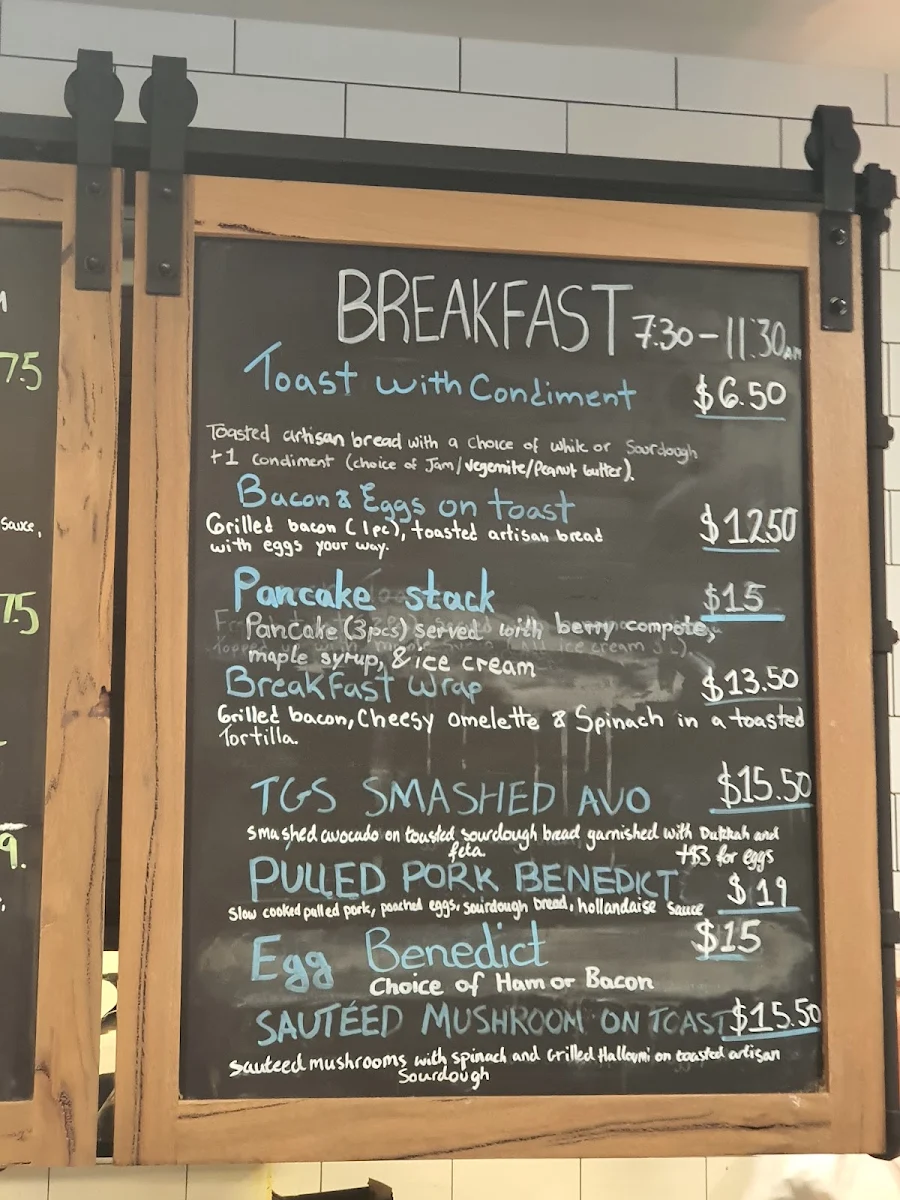 BREAKFAST 7:30 - 11:30AM
Toast with Condiment $6.50
Toasted artisan bread with a choice of white or Sourdough
+1 condiment (choice of Jam/vegemite/Peanut butter).
Bacon & Eggs on toast $1250
Grilled bacon (1pc), toasted artisan bread
with eggs your way.
Pancake stack $15
Pancake (3pcs) served with berry compote,
maple syrup, & ice cream
Breakfast Wrap $13.50
Grilled bacon, Cheesy omelette & Spinach in a toasted
Tortilla.
TGS SMASHED AVO $15.50
smashed avocado on toasted sourdough bread garnished with Dukkah and
feta. +$3 for eggs
PULLED PORK BENEDICT $19
Slow cooked pulled pork, poached eggs, sourdough bread, hollandaise sauce
Egg Benedict $15
Choice of Ham or Bacon
SAUTÉED MUSHROOM ON TOAST $15.50
sauteed mushrooms with spinach and Grilled Halloumi on toasted artisan
Sourdough
7.5
sauce,
7.5
9.